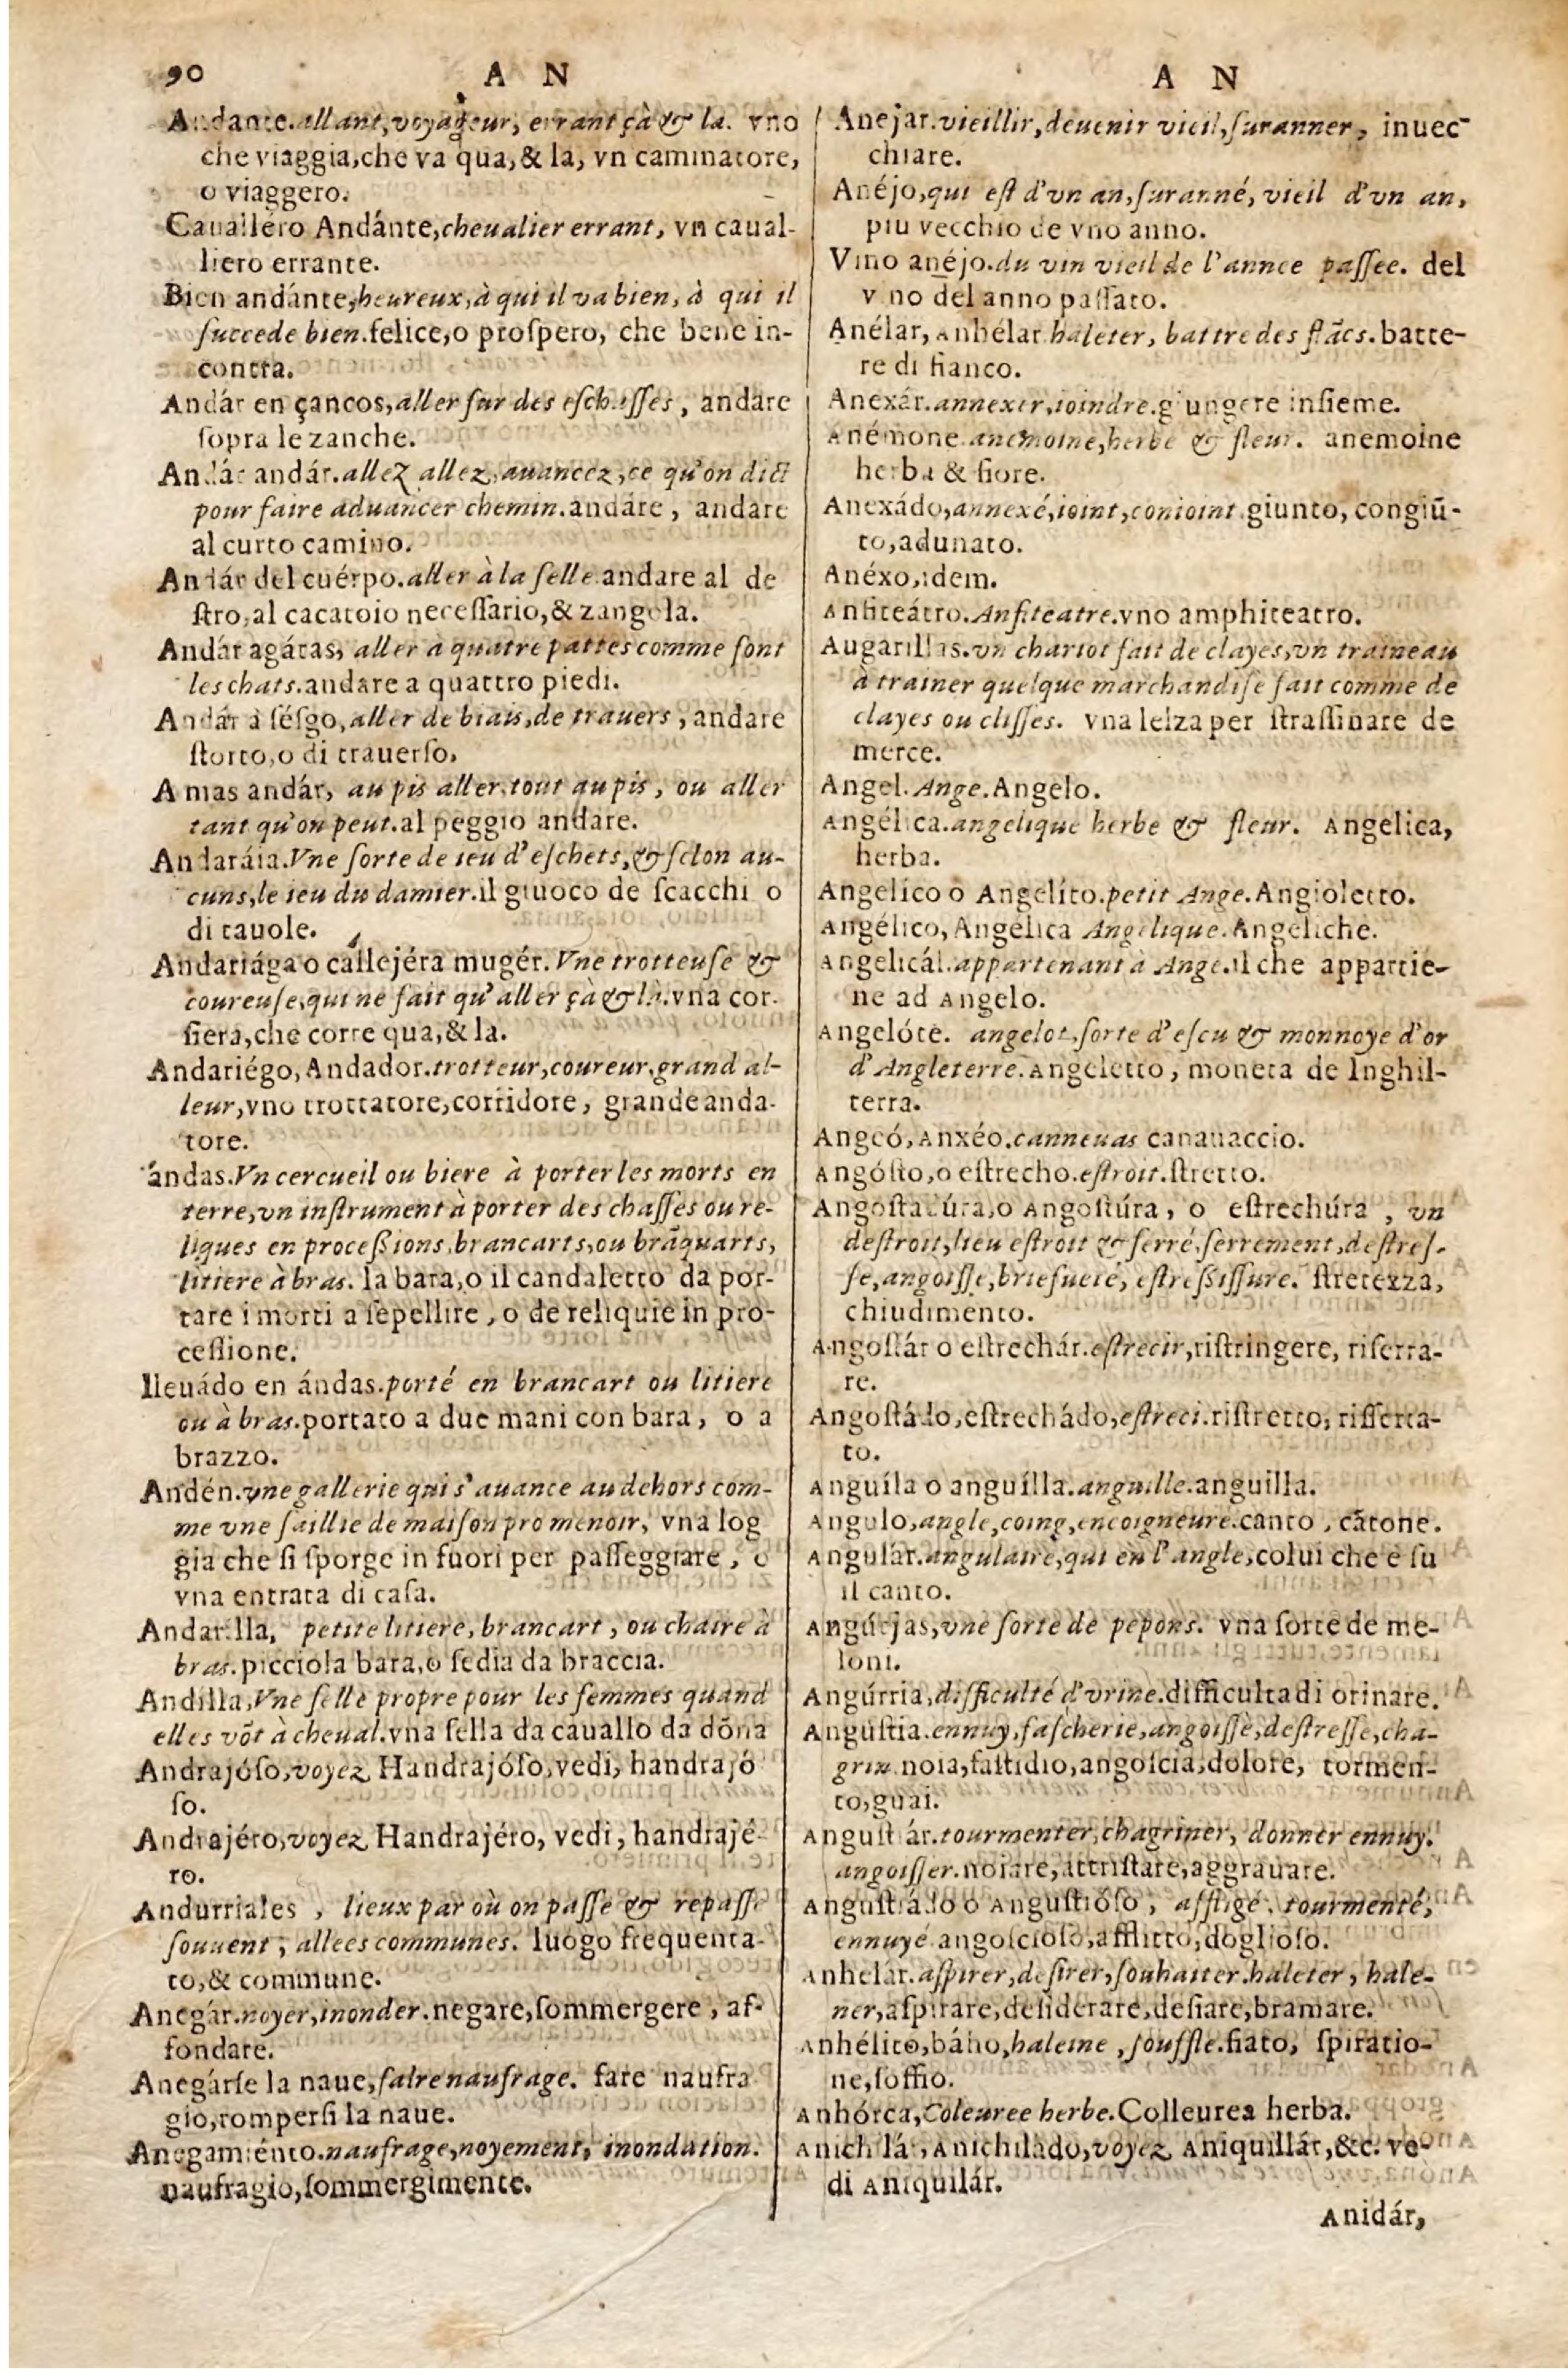 90 A N
Andante.allant,voyageur, errant çà & la. vno
che viaggia,che va qua,& la, vn caminatore,
o viaggero.
Cauallero Andánte,cheualier errant, vn caual-
liero errante.
Bien andánte,heureux,à qui il va bien, à qui il
ſuccede bien.felice,o proſpero, che bene in-
contra.
Andár en çancos,aller ſur des eſchaſſes, andare
ſopra le zanche.
Andár andár.allez allez,auancez,ce qu'on dict
pour faire aduancer chemin.andare, andare
al curto camino.
Andár del cuérpo.aller à la ſelle.andare al de
ſtro,al cacatoio neceſſario,& zangola.
Andár agátas, aller a quatre pattes comme font
les chats.andare a quattro piedi.
Andár à ſéſgo,aller de biais,de trauers, andare
ſtorto,o di trauerſo.
A mas andár, au pis aller,tout au pis, ou aller
tant qu'on peut.al peggio andare.
Andaráia.Vne ſorte de ieu d'eſchets,& ſelon au-
cuns,le ieu du damier.il giuoco de ſcacchi o
di tauole.
Andariága o callejéra mugér.Vne trotteuſe &
coureuſe,qui ne fait qu'aller çà & là.vna cor-
ſiera,che corre qua,& la.
Andariégo,Andador.trotteur,coureur,grand al-
leur,vno trottatore,corridore, grande anda-
tore.
ándas.Vn cercueil ou biere à porter les morts en
terre,vn inſtrument à porter des chaſſes ou re-
liques en proceſsions,brancarts,ou brãquarts,
litiere à bras. la bara,o il candaletto da por-
tare i morti a ſepellire, o de reliquie in pro-
ceſſione.
lleuádo en ándas.porté en brancart ou litiere
ou à bras.portato a due mani con bara, o a
brazzo.
Andén.vne gallerie qui s'auance au dehors com-
me vne ſaillie de maiſon promenoir, vna log
gia che ſi ſporge in fuori per paſſeggiare, o
vna entrata di caſa.
Andarilla, petite litiere, brancart, ou chaire à
bras.picciola bara,o ſedia da braccia.
Andilla,Vne ſelle propre pour les femmes quand
elles võt à cheual.vna ſella da cauallo da dõna
Andrajóſo,voyez Handrajóſo,vedi, handrajó
ſo.
Andrajéro,voyez Handrajéro, vedi, handrajé-
ro.
Andurriales, lieux par où on paſſe & repaſſe
ſouuent, allees communes. luogo frequenta-
to,& commune.
Anegár.noyer,inonder.negare,ſommergere, af-
fondare.
Anegárſe la naue,faire naufrage. fare naufra
gio,romperſi la naue.
Anegamiénto.naufrage,noyement, inondation.
naufragio,ſommergimente.
A N
Anejar.vieillir,deuenir vieil,ſuranner, inuec-
chiare.
Anéjo,qui eſt d'vn an,ſuranné, vieil d'vn an,
piu vecchio de vno anno.
Vino anéjo.du vin vieil de l'annee paſſee. del
vino del anno paſſato.
Anélar, Anhélar haleter, battre des flãcs.batte-
re di fianco.
Anexár.annexer,ioindre.giungere inſieme.
Anémone anemoine,herbe & fleur. anemoine
herba & fiore.
Anexádo,annexé,ioint,conioint.giunto, congiũ-
to,adunato.
Anéxo,idem.
Anfiteátro.Anfiteatre.vno amphiteatro.
Augarillas.vn chariot fait de clayes,vn traineau
à trainer quelque marchandiſe fait comme de
clayes ou cliſſes. vna lelza per ſtraſſinare de
merce.
Angel.Ange.Angelo.
Angélica.angelique herbe & fleur. Angelica,
herba.
Angelíco o Angelíto.petit Ange.Angioletto.
Angélico, Angélica Angelique.Angeliche.
Angelicál.appartenant à Ange.il che appartie-
ne ad Angelo.
Angelóte. angelot,ſorte d'eſcu & monnoye d'or
d'Angleterre.Angeletto, moneta de Inghil-
terra.
Angeó, Anxéo.canneuas canauaccio.
Angóſto,o eſtrecho.eſtroit.ſtretto.
Angoſtatúra,o Angoſtúra, o eſtrechúra, vn
deſtroit,lieu eſtroit & ſerré,ſerrement,deſtreſ-
ſe,angoiſſe,briefueté, eſtreſsiſſure. ſtretezza,
chiudimento.
Angoſtár o eſtrechár.eſtrecir,riſtringere, riſerra-
re.
Angoſtádo,eſtrechádo,eſtreci.riſtretto, riſſerra-
to.
Anguíla o anguílla.anguille.anguilla.
Angulo,angle,coing,encoigneure.canto, cãtone.
Angulár.angulaire,qui en l'angle,colui che è ſu
il canto.
Angúrjas,vne ſorte de pepons. vna ſorte de me-
loni.
Angúrria,difficulté d'vrine.difficulta di orinare.
Angúſtia.ennuy,faſcherie,angoiſſe,deſtreſſe,cha-
grin.noia,faſtidio,angoſcia,dolore, tormen-
to,guai.
Anguſtiár.tourmenter,chagriner, donner ennuy.
angoiſſer.noiare,attriſtare,aggrauare.
Anguſtiádo o Anguſtióſo, affligé, tourmenté,
ennuyé angoſcioſo,afflitto,doglioſo.
Anhelár.aſpirer,deſirer,ſouhaiter.haleter, hale-
ner,aſpirare,deſiderare,deſiare,bramare.
Anhélito,báho,haleine, ſouffle.fiato, ſpiratio-
ne,ſoffio.
Anhórca,Coleuree herbe.Colleurea herba.
Anichilár, Anichilado,voyez Aniquillár,&c. ve-
di Aniquilár.
Anidár,